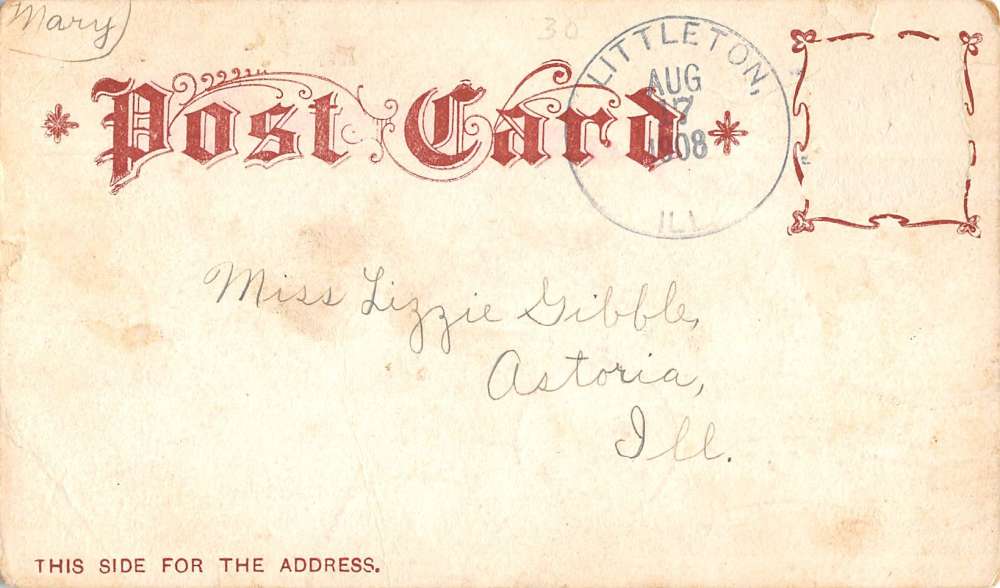 Mary
30
Post Card
LITTLETON,
AUG
17
1908
ILL.
Miss Lizzie Gibble,
Astoria,
Ill.
THIS SIDE FOR THE ADDRESS.